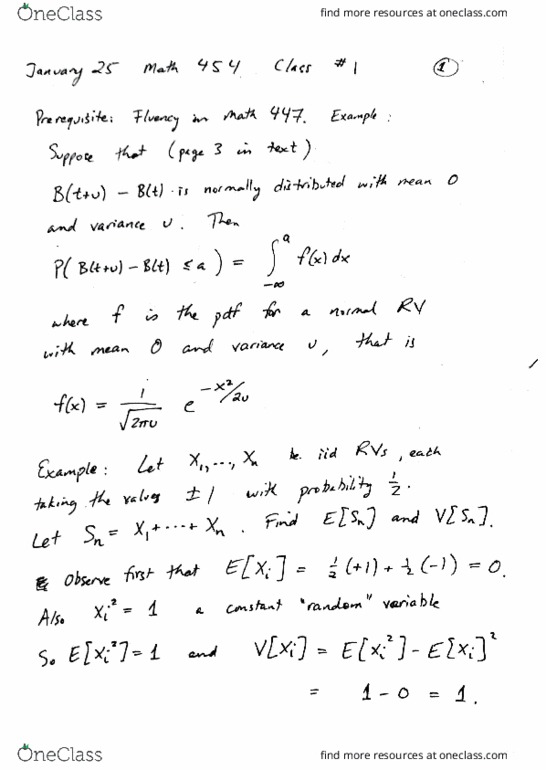 OneClass find more resources at oneclass.com
January 25 Math 454 Class #1 ①
Prerequisite: Fluency in Math 447. Example:
Suppose that (page 3 in text)
B(t+υ) – B(t) is normally distributed with mean 0
and variance υ. Then
P( B(t+υ) – B(t) ≤ a ) = ∫_{-∞}^{a} f(x) dx
where f is the pdf for a normal RV
with mean 0 and variance υ, that is
f(x) = 1/√(2πυ) e^{-x²/2υ}
Example: Let X₁, ..., Xₙ be iid RVs, each
taking the values ±1 with probability ½.
Let Sₙ = X₁ + ··· + Xₙ. Find E[Sₙ] and V[Sₙ].
Observe first that E[Xᵢ] = ½(+1) + ½(-1) = 0.
Also Xᵢ² = 1 a constant "random" variable
So E[Xᵢ²] = 1 and V[Xᵢ] = E[Xᵢ²] – E[Xᵢ]²
= 1 – 0 = 1.
OneClass find more resources at oneclass.com